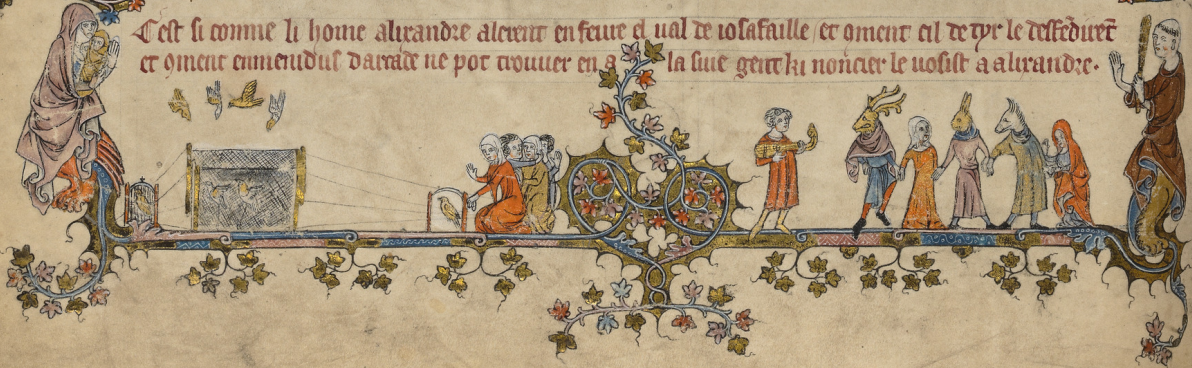 C est si comme li home alixandre alerent en feurre el ual de iosafaille / et ꝯment cil de tyr le desfēdirēt
et ꝯment emenidus darcade ne pot trouuer en a la siue gent ki noncier le uosist a alixandre.